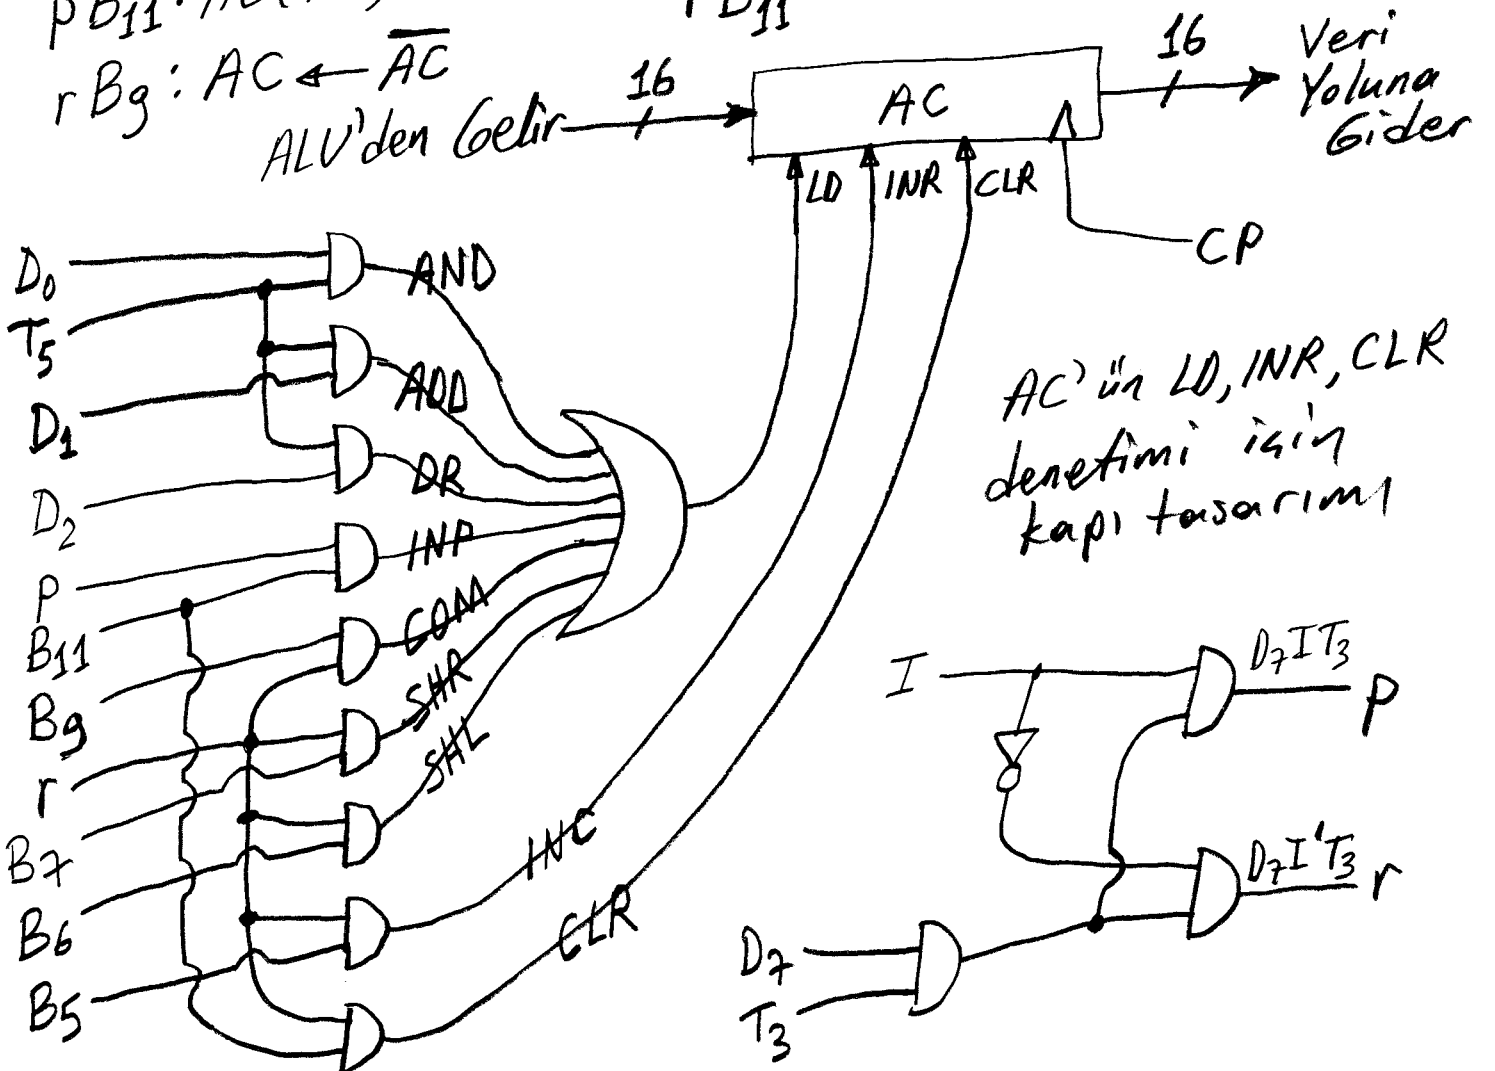 pB11: AC(
B11
rB9: AC ← A̅C̅
ALU'den Gelir
16
AC
16
Veri
Yoluna
Gider
LD
INR
CLR
CP
D0
T5
D1
D2
P
B11
B9
r
B7
B6
B5
AND
ADD
DR
INP
COM
SHR
SHL
INC
CLR
AC'ün LD, INR, CLR
denetimi için
kapı tasarımı
I
D7IT3
P
D7I'T3
r
D7
T3